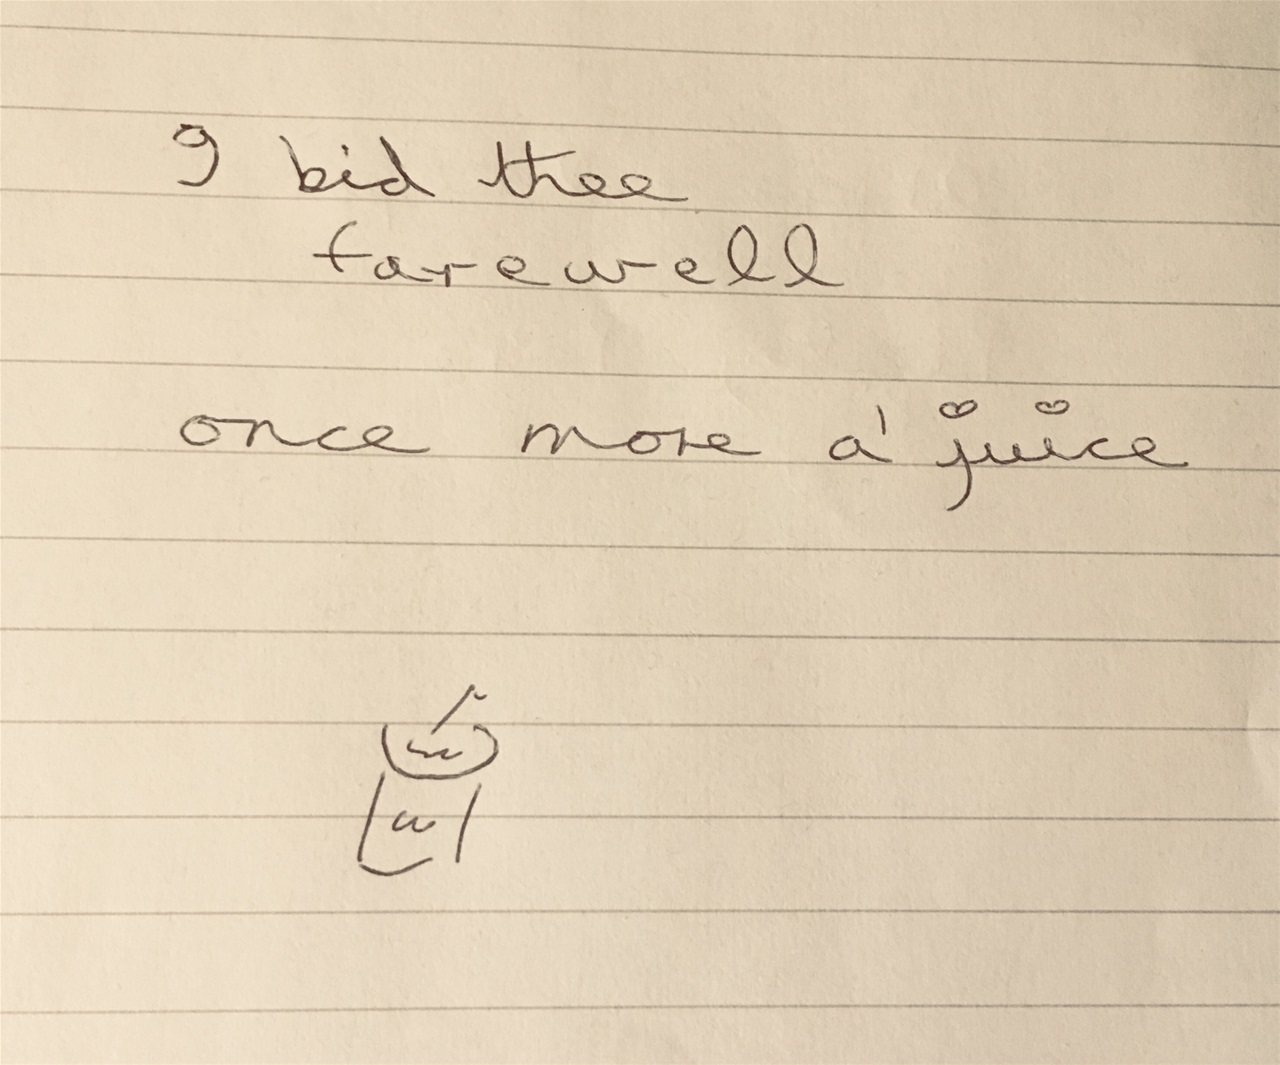 I bid thee
farewell
once more a' juice